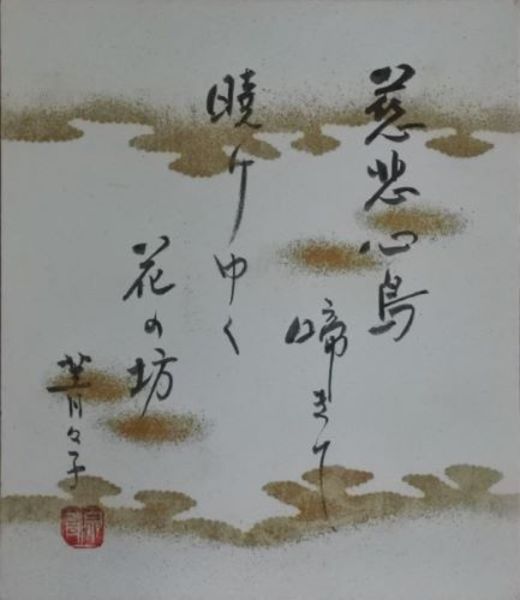 慈悲心鳥
啼きて
暁けゆく
花の坊
月々子